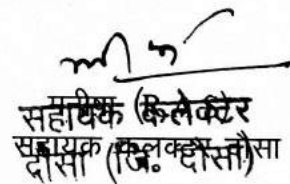 सहायक कलेक्टर
सहायक कलक्टर दौसा
दौसा (जि. दौसा)